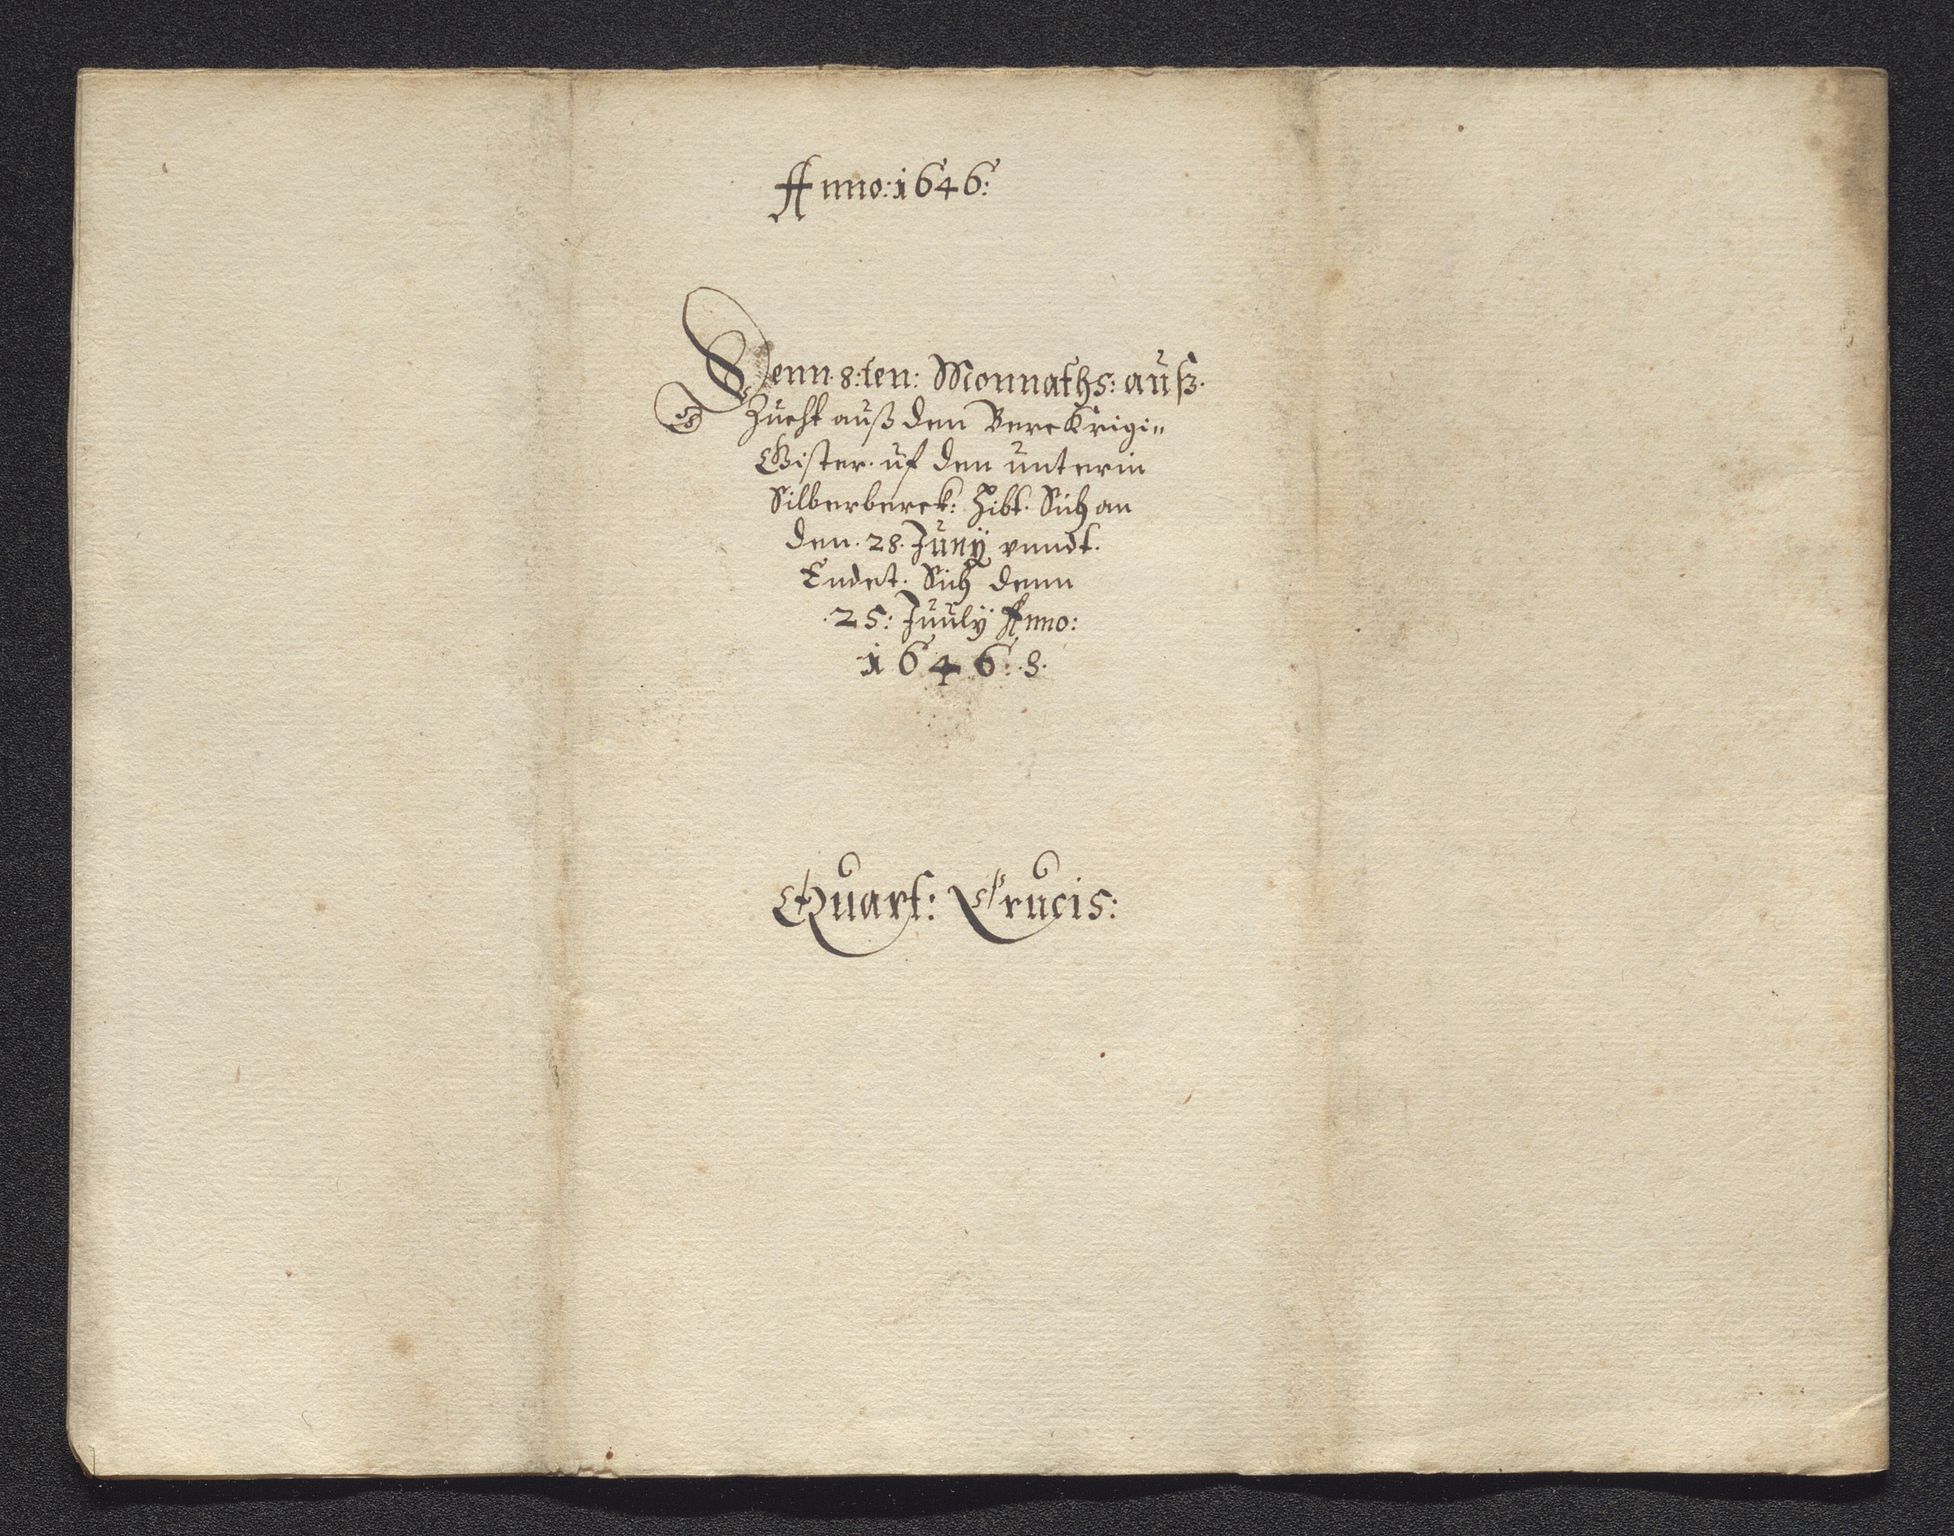 Anno: 1646:
Denn. 8: ten: Monnaths: auß.
Zucht auß den Berckrigi=
Gister. uf den unterin
Silberberck: Hibt. Sich an
den. 28. Juny vnndt.
Endet. Sich denn
.25: Juuly Anno:
1646: .8.
Quart: Crucis: